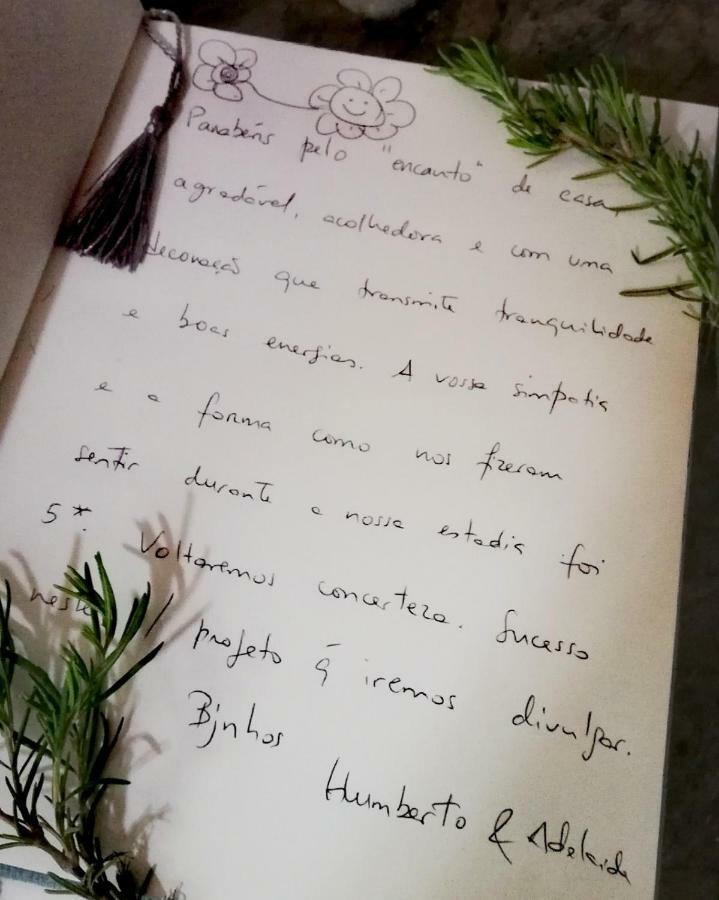 Parabéns pelo "encanto" de casa
agradável, acolhedora e com uma
decoração que transmite tranquilidade
e boas energias. A vossa simpatia
e a forma como nos fizeram
sentir durante a nossa estadia foi
5*. Voltaremos concerteza. Sucesso
neste / projeto q̃ iremos divulgar.
Bjnhos
Humberto & Adelaide